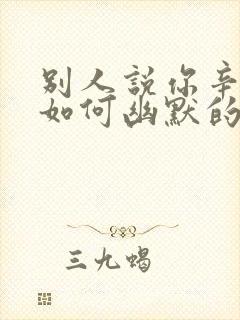 別人説你辛
如何幽默的
三九蝎